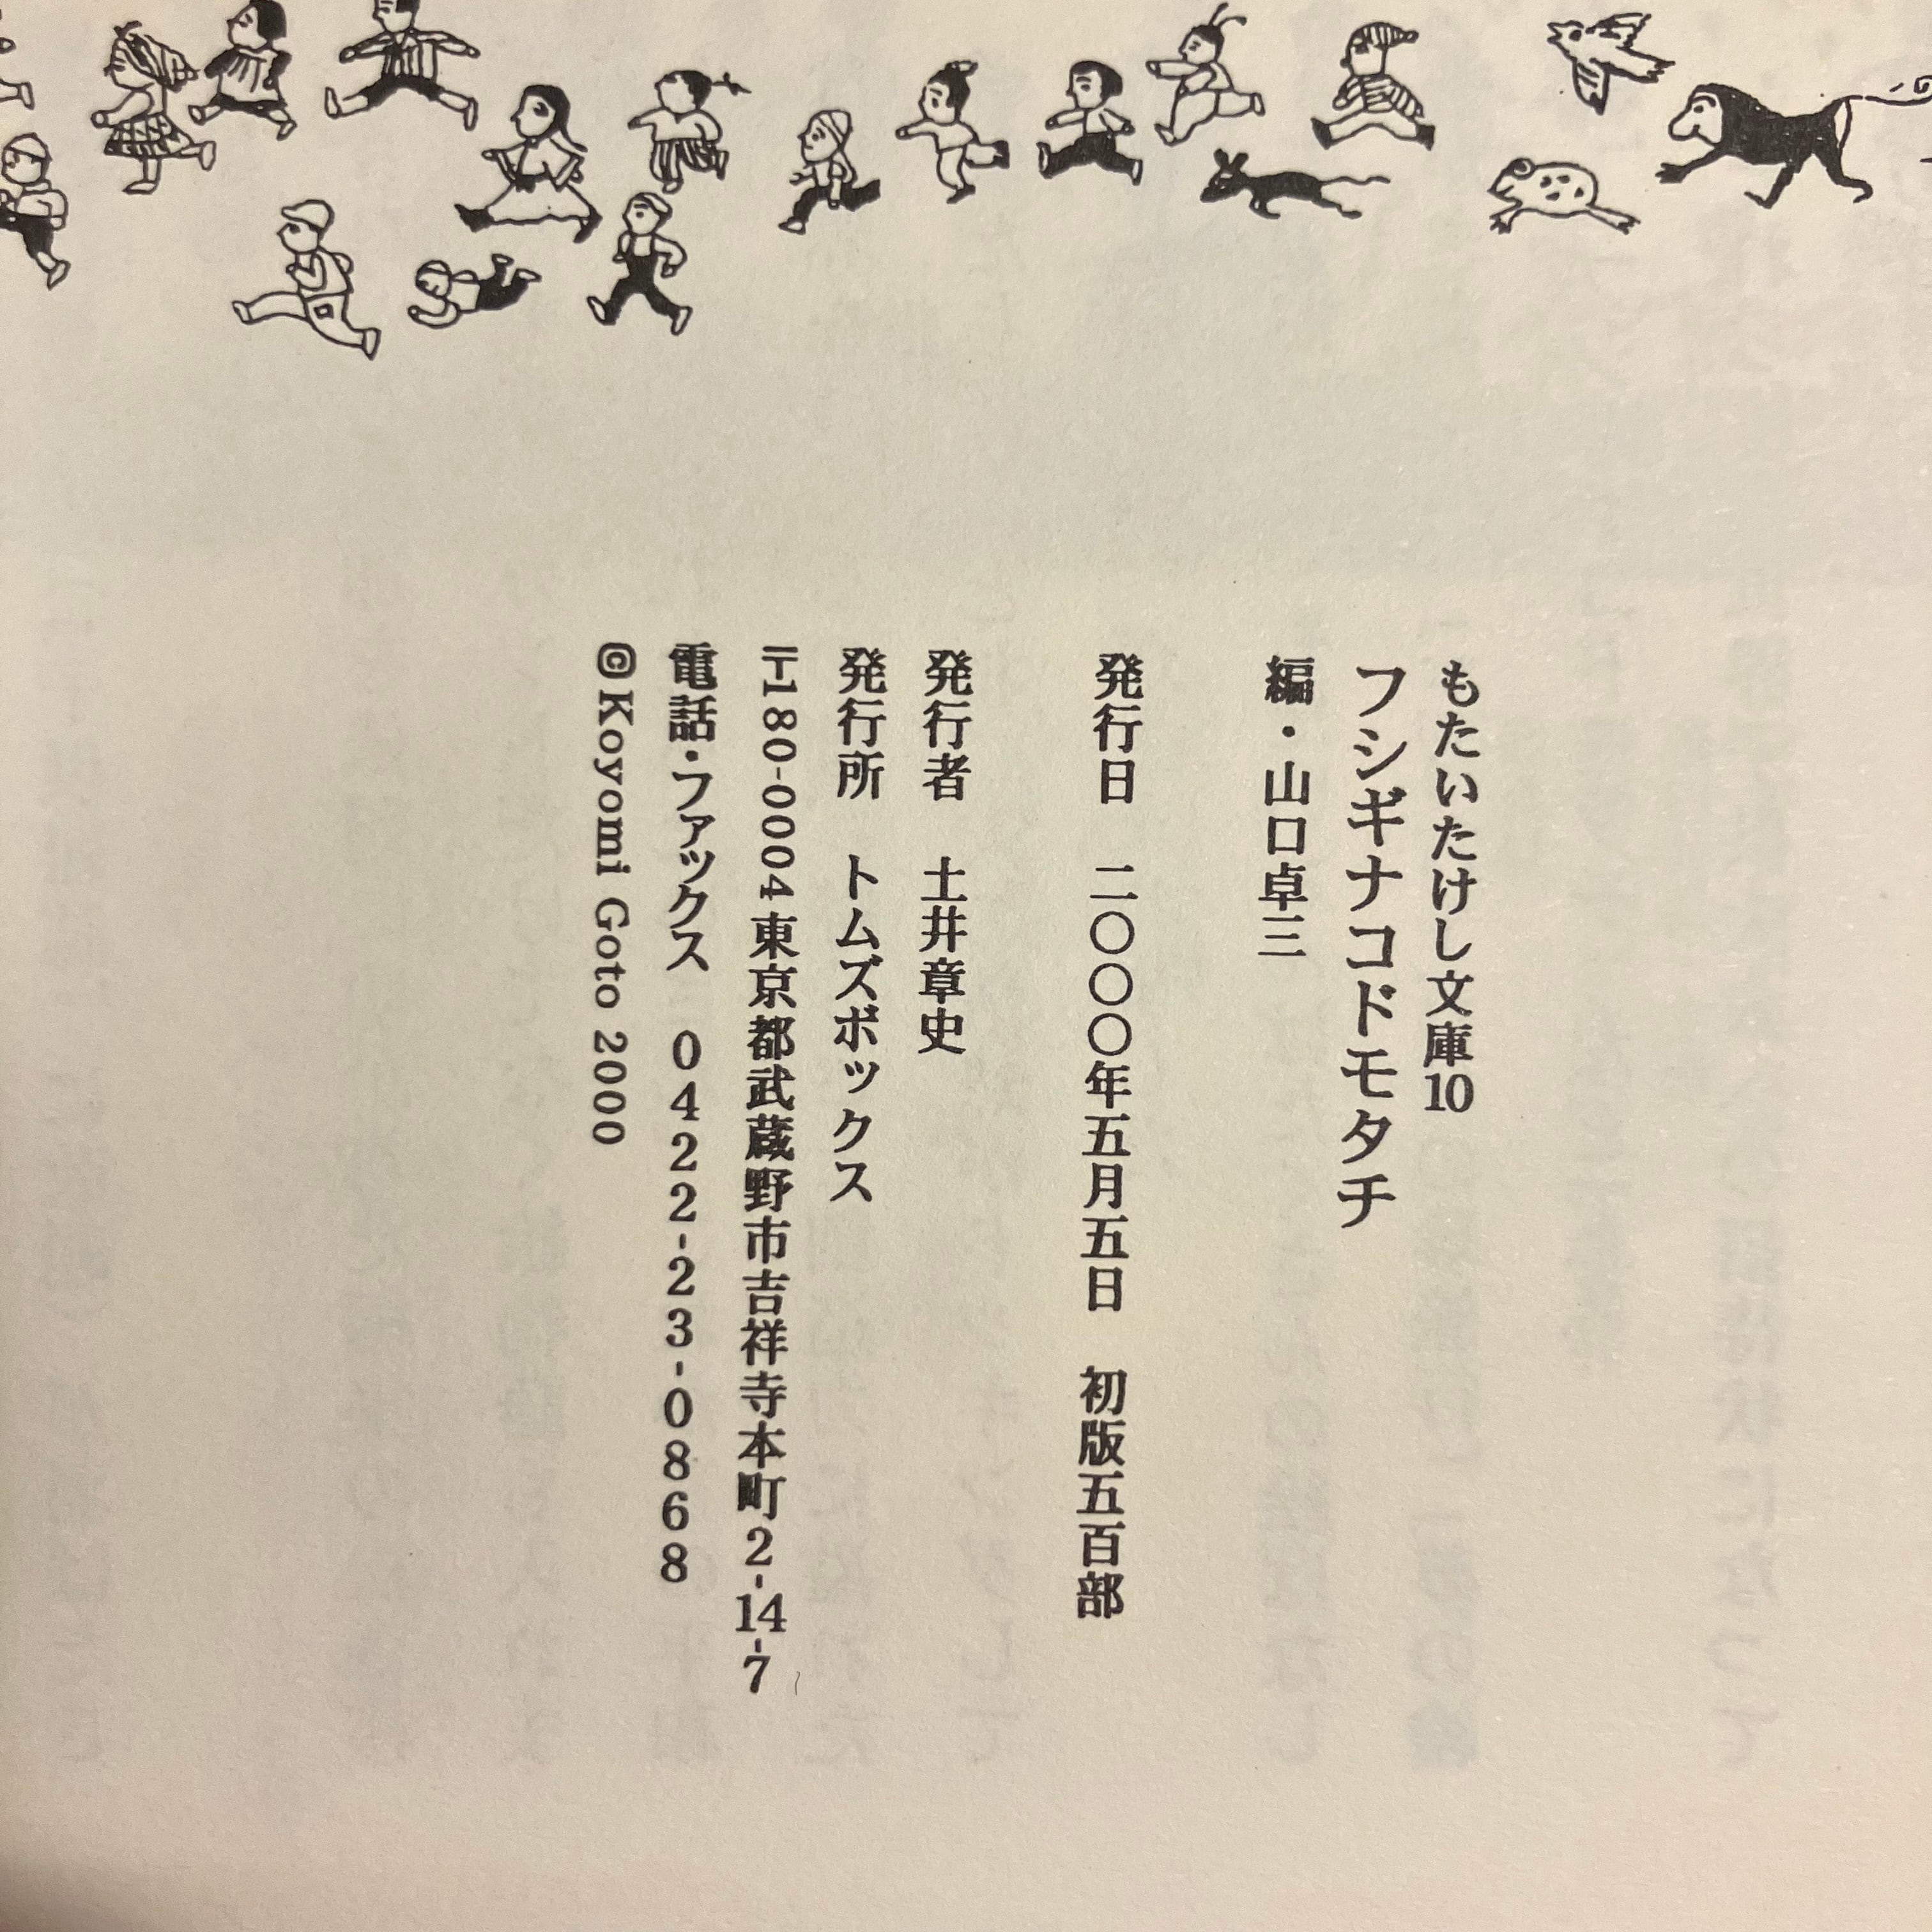 もたいたけし文庫10
フシギナコドモタチ
編・山口卓三
発行日　二〇〇〇年五月五日　初版五百部
発行者　土井章史
発行所　トムズボックス
〒180-0004東京都武蔵野市吉祥寺本町2-14-7
電話・ファックス　0422-23-0868
©Koyomi Goto 2000